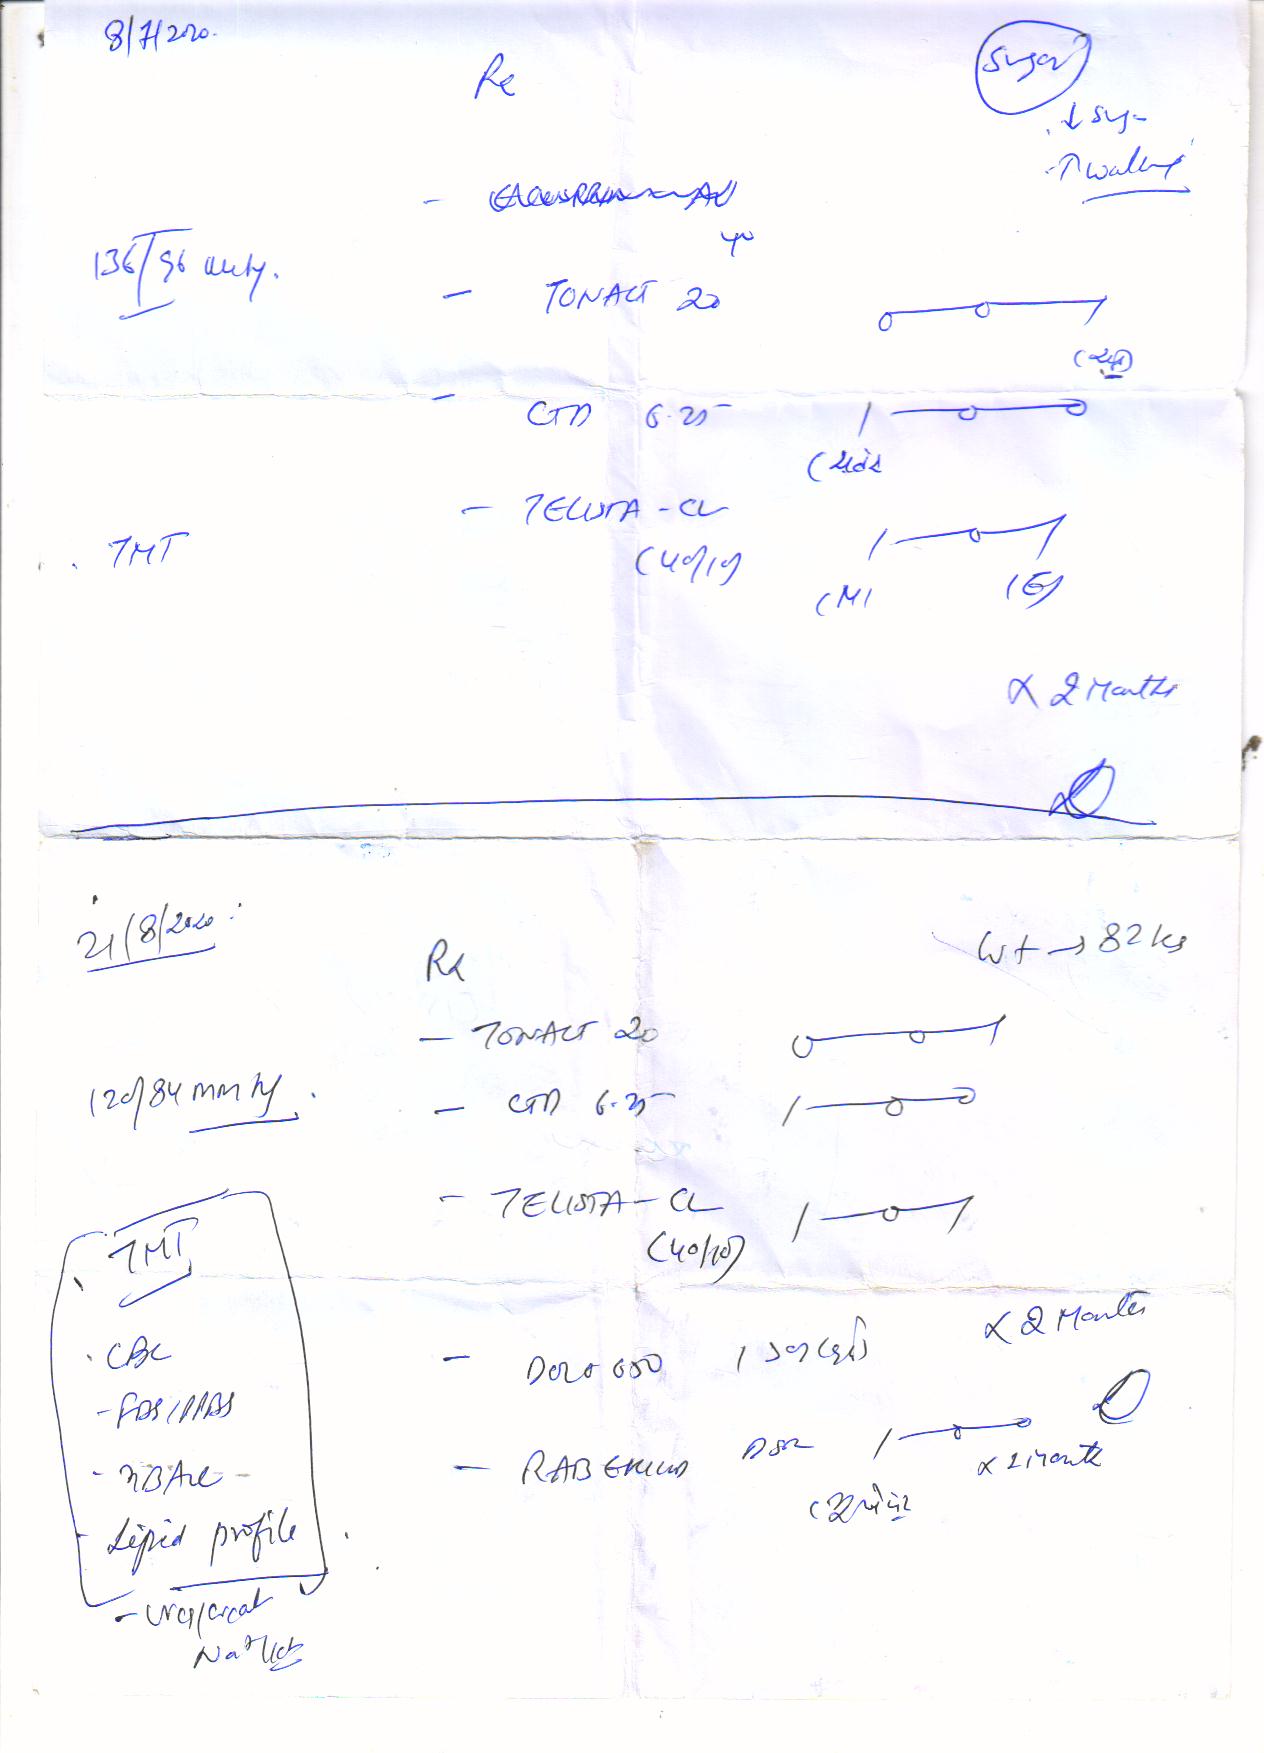 8/7/2020.
Rx
Sugar
↓ Sug-
- ↑ walking
136/96 mmHg.
40
- TONACT 20 0—0—1
- CTD 6.25 1—0—0
- TELISTA - CL 1—0—1
(40/10)
(M) (E)
. TMT
x 2 Months
21/8/2020
Rx
Wt → 82 kg
- TONACT 20 0—0—1
120/84 mmHg.
- CTD 6.25 1—0—0
- TELISTA - CL 1—0—1
(40/10)
TMT
x 2 Months
. CBC
- DOLO 650
- FBS/PPBS
- RAB DSR 1—0—0
x 1 Month
- HBA1C -
- Lipid profile
- Urea/Creat
Na+/K+